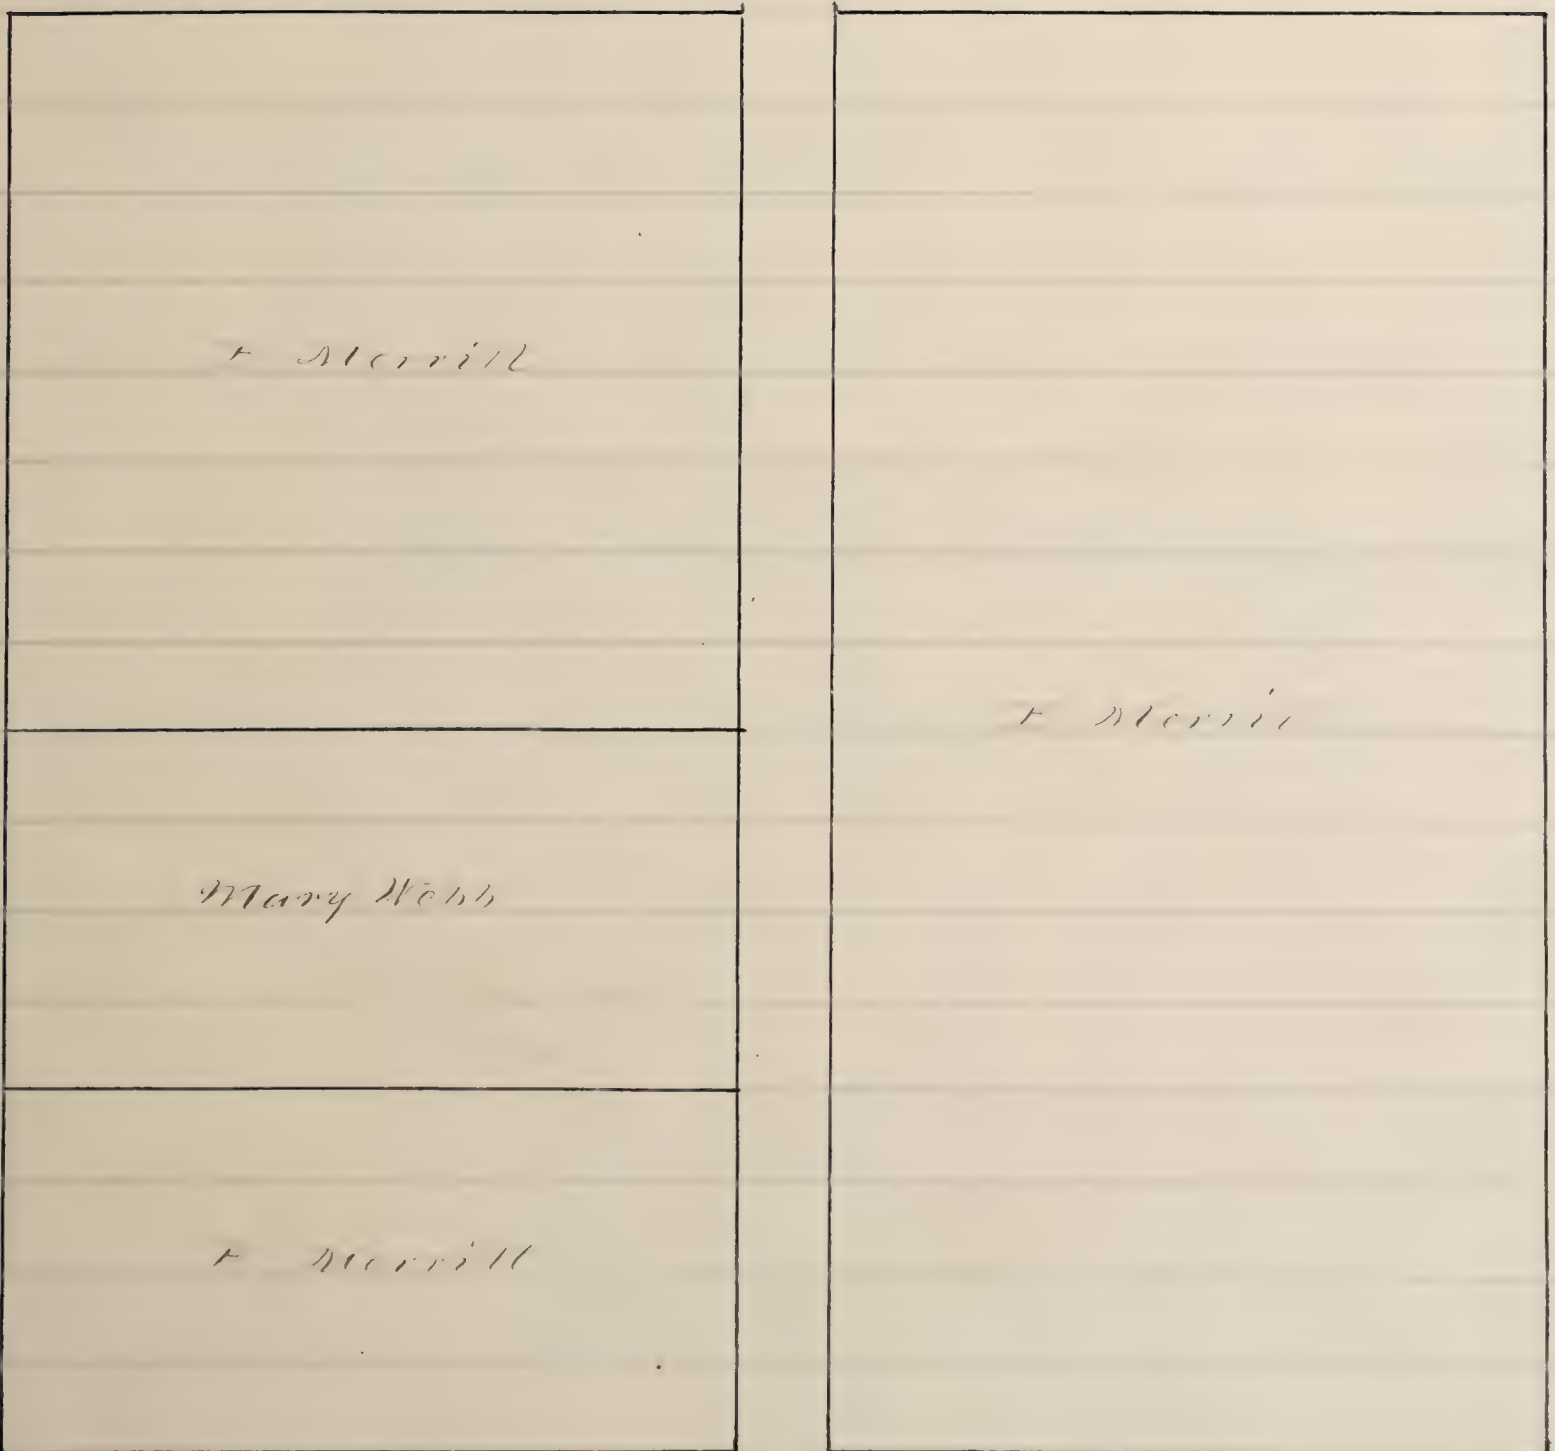 Merrill
Mary Webb
Merrill
Merril